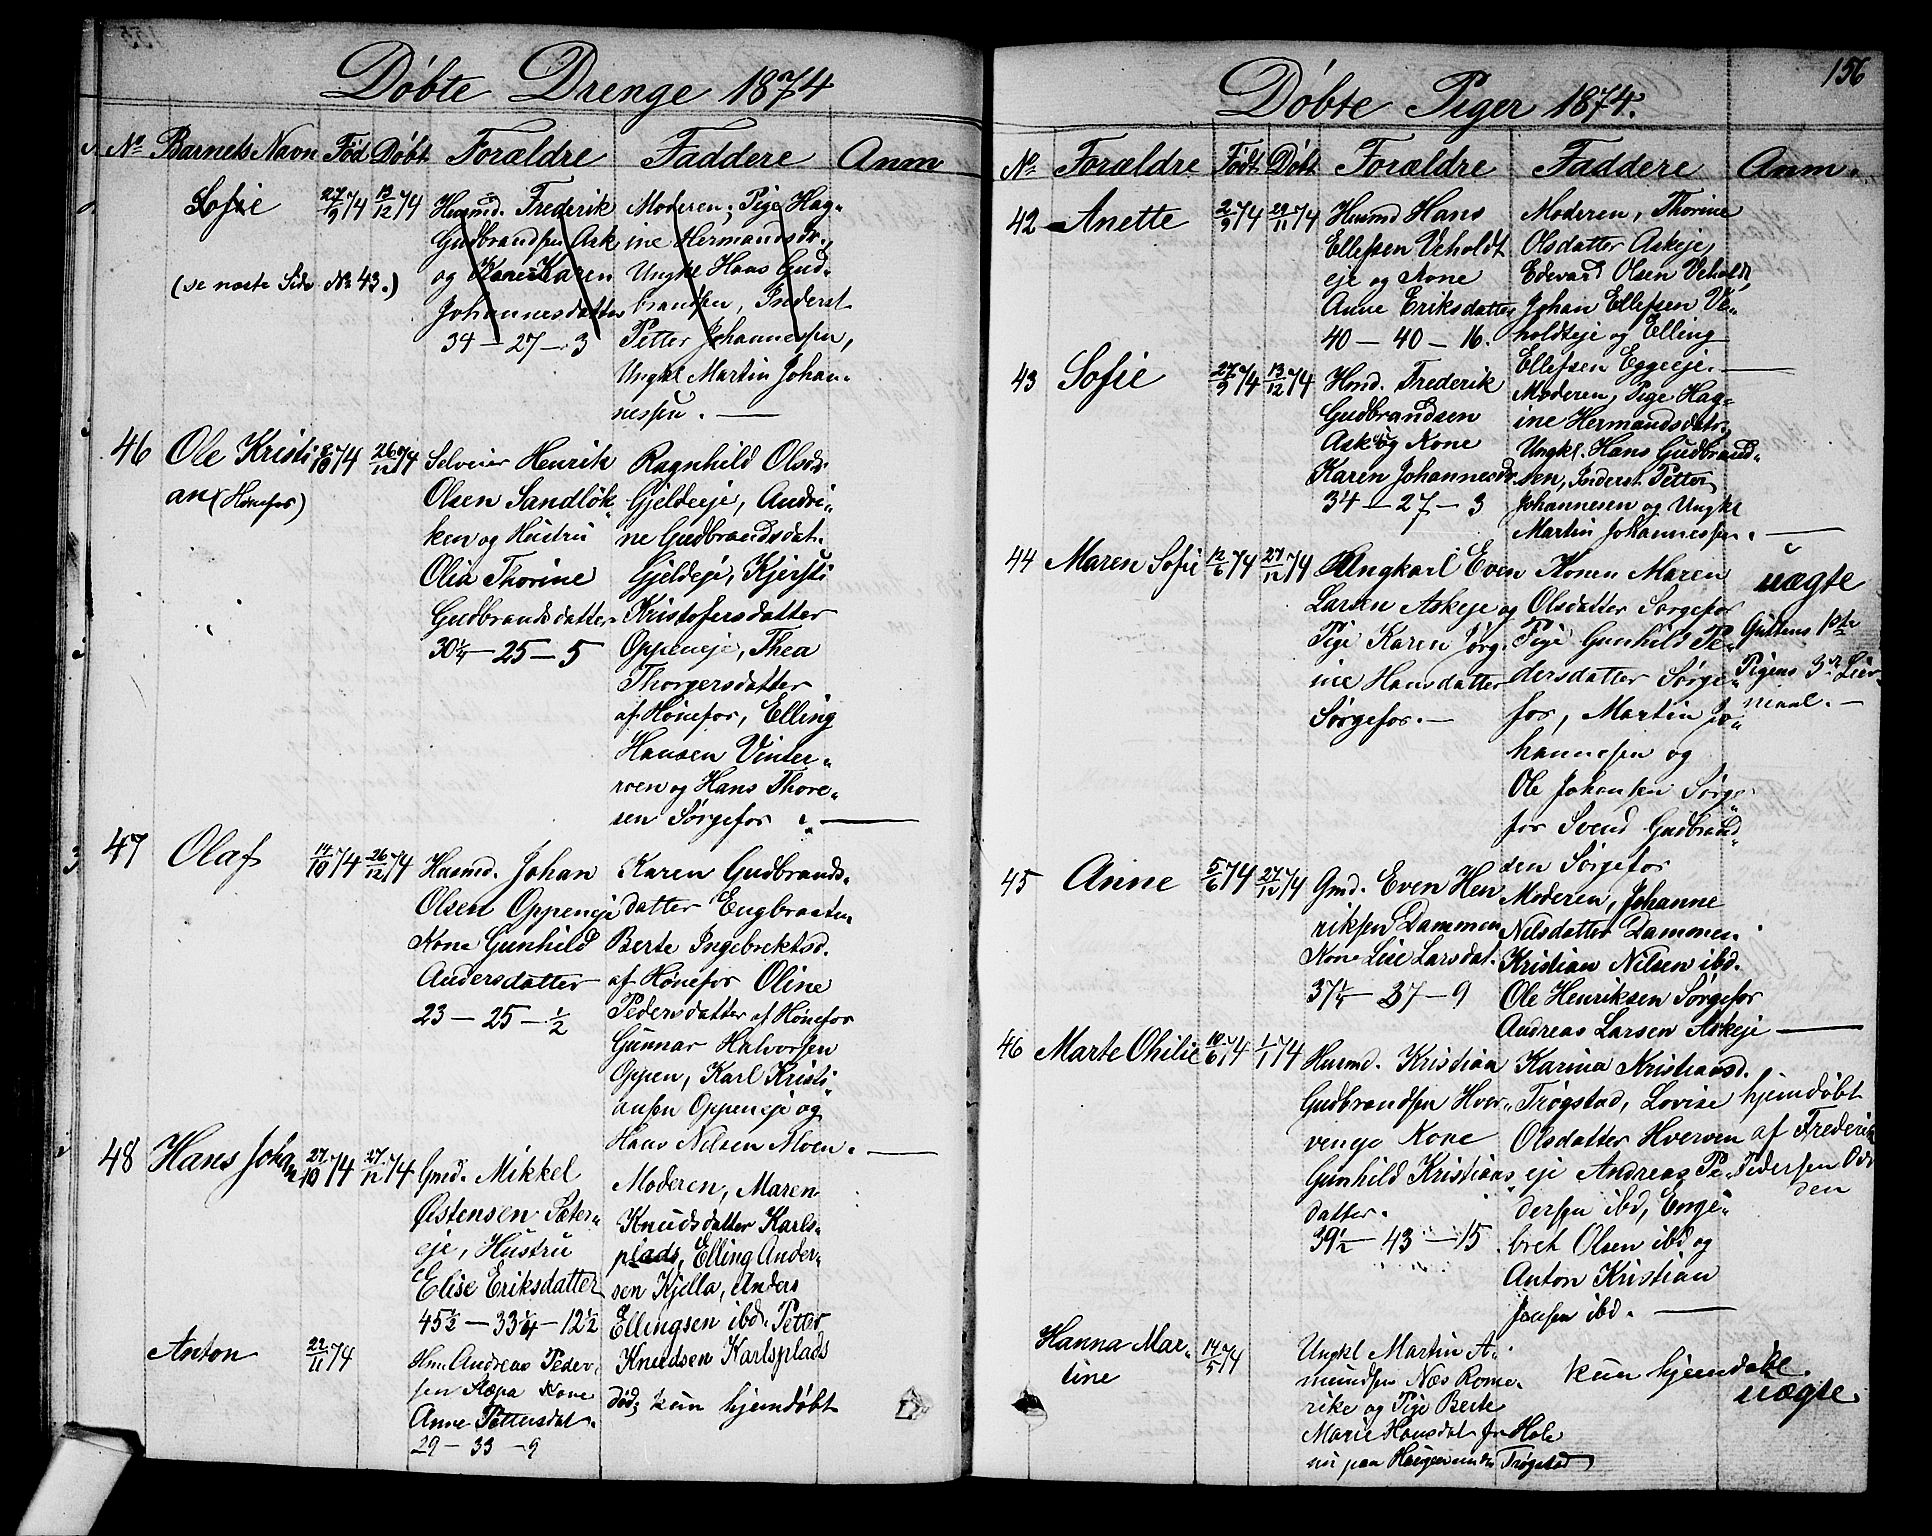 Döbte Drenge 1874
No Barnets Navn Fød Döbt Forældre Faddere Anm
Sofie 27/9 74 13/12 74
(se næste Side No 43.)
Husmd. Frederik
Gudbrandsen Ask
og Kone Karen
Johannesdatter
34 - 27 - 3
Moderen; Pige Hag-
ine Hermandsdr.,
Ungkl Hans Gud-
brandsen, Inderst
Petter Johannessen,
Ungkl Martin Johan-
nessen. -
46 Ole Kristi 8/10 74 26/12 74
an (Hönefos)
Selveier Henrik
Olsen Sandlök-
ken og Hustru
Olia Thorine
Gudbrandsdatter
30 1/4 - 25 - 5
Ragnhild Olsdr
Gjeldeeje, Andri-
ne Gudbrandsdat.
Gjeldeje, Kjersti
Kristofersdatter
Oppeneje, Thea
Thorgersdatter
af Hönefos, Elling
Hansen Vinter-
roen og Hans Thore-
sen Sørgefos . -
47 Olaf 14/10 74 26/12 74
Husmd. Johan
Olsen Oppeneje
Kone Gunhild
Andersdatter
23 - 25 - 1/2
Karen Gudbrands-
datter Engbraaten
Berte Ingebrektsd.
af Hönefos Oline
Pedersdatter af Hönefos
Gunnar Halvorsen
Oppen, Karl Kristi-
ansen Oppeneje og
Hans Nilsen Moen. -
48 Hans Johan 27/10 74 27/12 74
Gmd. Mikkel
Østensen Sæter-
eje, Hustru
Elise Eriksdatter
45 1/2 - 33 1/4 - 12 1/2
Moderen, Maren
Knudsdatter Karls-
plads, Elling Ander-
sen Kjella, Anders
Ellingsen ibd. Petter
Knudsen Karlsplads
Anton 22/11 74
Hm. Andreas Peder-
sen Kone
Anne Pettersdat.
29 - 33 - 9
död; kun hjemdöbt
156
Döbte Piger 1874.
No Forældre Födt Döbt Forældre Faddere Anm.
42 Anette 2/9 74 29/11 74
Husmd Hans
Ellefsen Veholdt
eje og Kone
Anne Eriksdatter
40 - 40 - 16.
Moderen, Thorine
Olsdatter Askeje,
Edevard Olsen Veholdt,
Johan Ellefsen Ve-
holdteje og Elling
Ellefsen Eggeeje. -
43 Sofie 27/9 74 13/12 74
Hmd. Frederik
Gudbrandsen
Ask og Kone
Karen Johannesdr.
34 - 27 - 3
Moderen, Pige Hag-
ine Hermandsdatr,
Ungkl. Hans Gudbrand-
sen, Inderst Petter
Johannesen og Ungkl
Martin Johannessen. -
44 Maren Sofie 12/6 74 27/12 74
Ungkarl Even
Larsen Askeje og
Pige Karen Jörg-
ine Hansdatter
Sörgefos. -
Konen Maren
Olsdatter Sørgefos
Pige Gunhild Pe-
dersdatter Sørge-
fos, Martin Jo-
hannesen og
Ole Johansen Sørge-
fos Svend Gudbrand-
sen Sørgefos
uægte
Guttens 1ste
Pigens 3die Leier-
maal. -
45 Anne 5/6 74 27/12 74
Gmd. Even Hen
riksen Dammen
Kone Lise Larsdat.
37 1/4 - 37 - 9
Moderen, Johanne
Nilsdatter Dammen.
Kristian Nilsen ibd.
Ole Henriksen Sørgefos
Andreas Larsen Askeje -
46 Marte Othilie 10/6 74 1/1 74
Husmd. Kristian
Gudbrandsen Hver-
veneje Kone
Gunhild Kristians-
datter.
39 1/2 - 43 - 15
Karina Kristiansd.
Trøgstad, Lovise
Olsdatter Hverven
eje Andreas Pe-
dersen ibd, Enge-
bret Olsen ibd og
Anton Kristian
Jensen ibd. -
hjemdöbt
af Frederik
Pedersen
Hanna Mar-
tine 14/5 74
Ungkl Martin A-
mundsen Næs Rome-
rike og Pige Berte
Marie Hansdat fra Hole
nu paa Haugen under Trøgstad
kun hjemdöbt.
uægte.